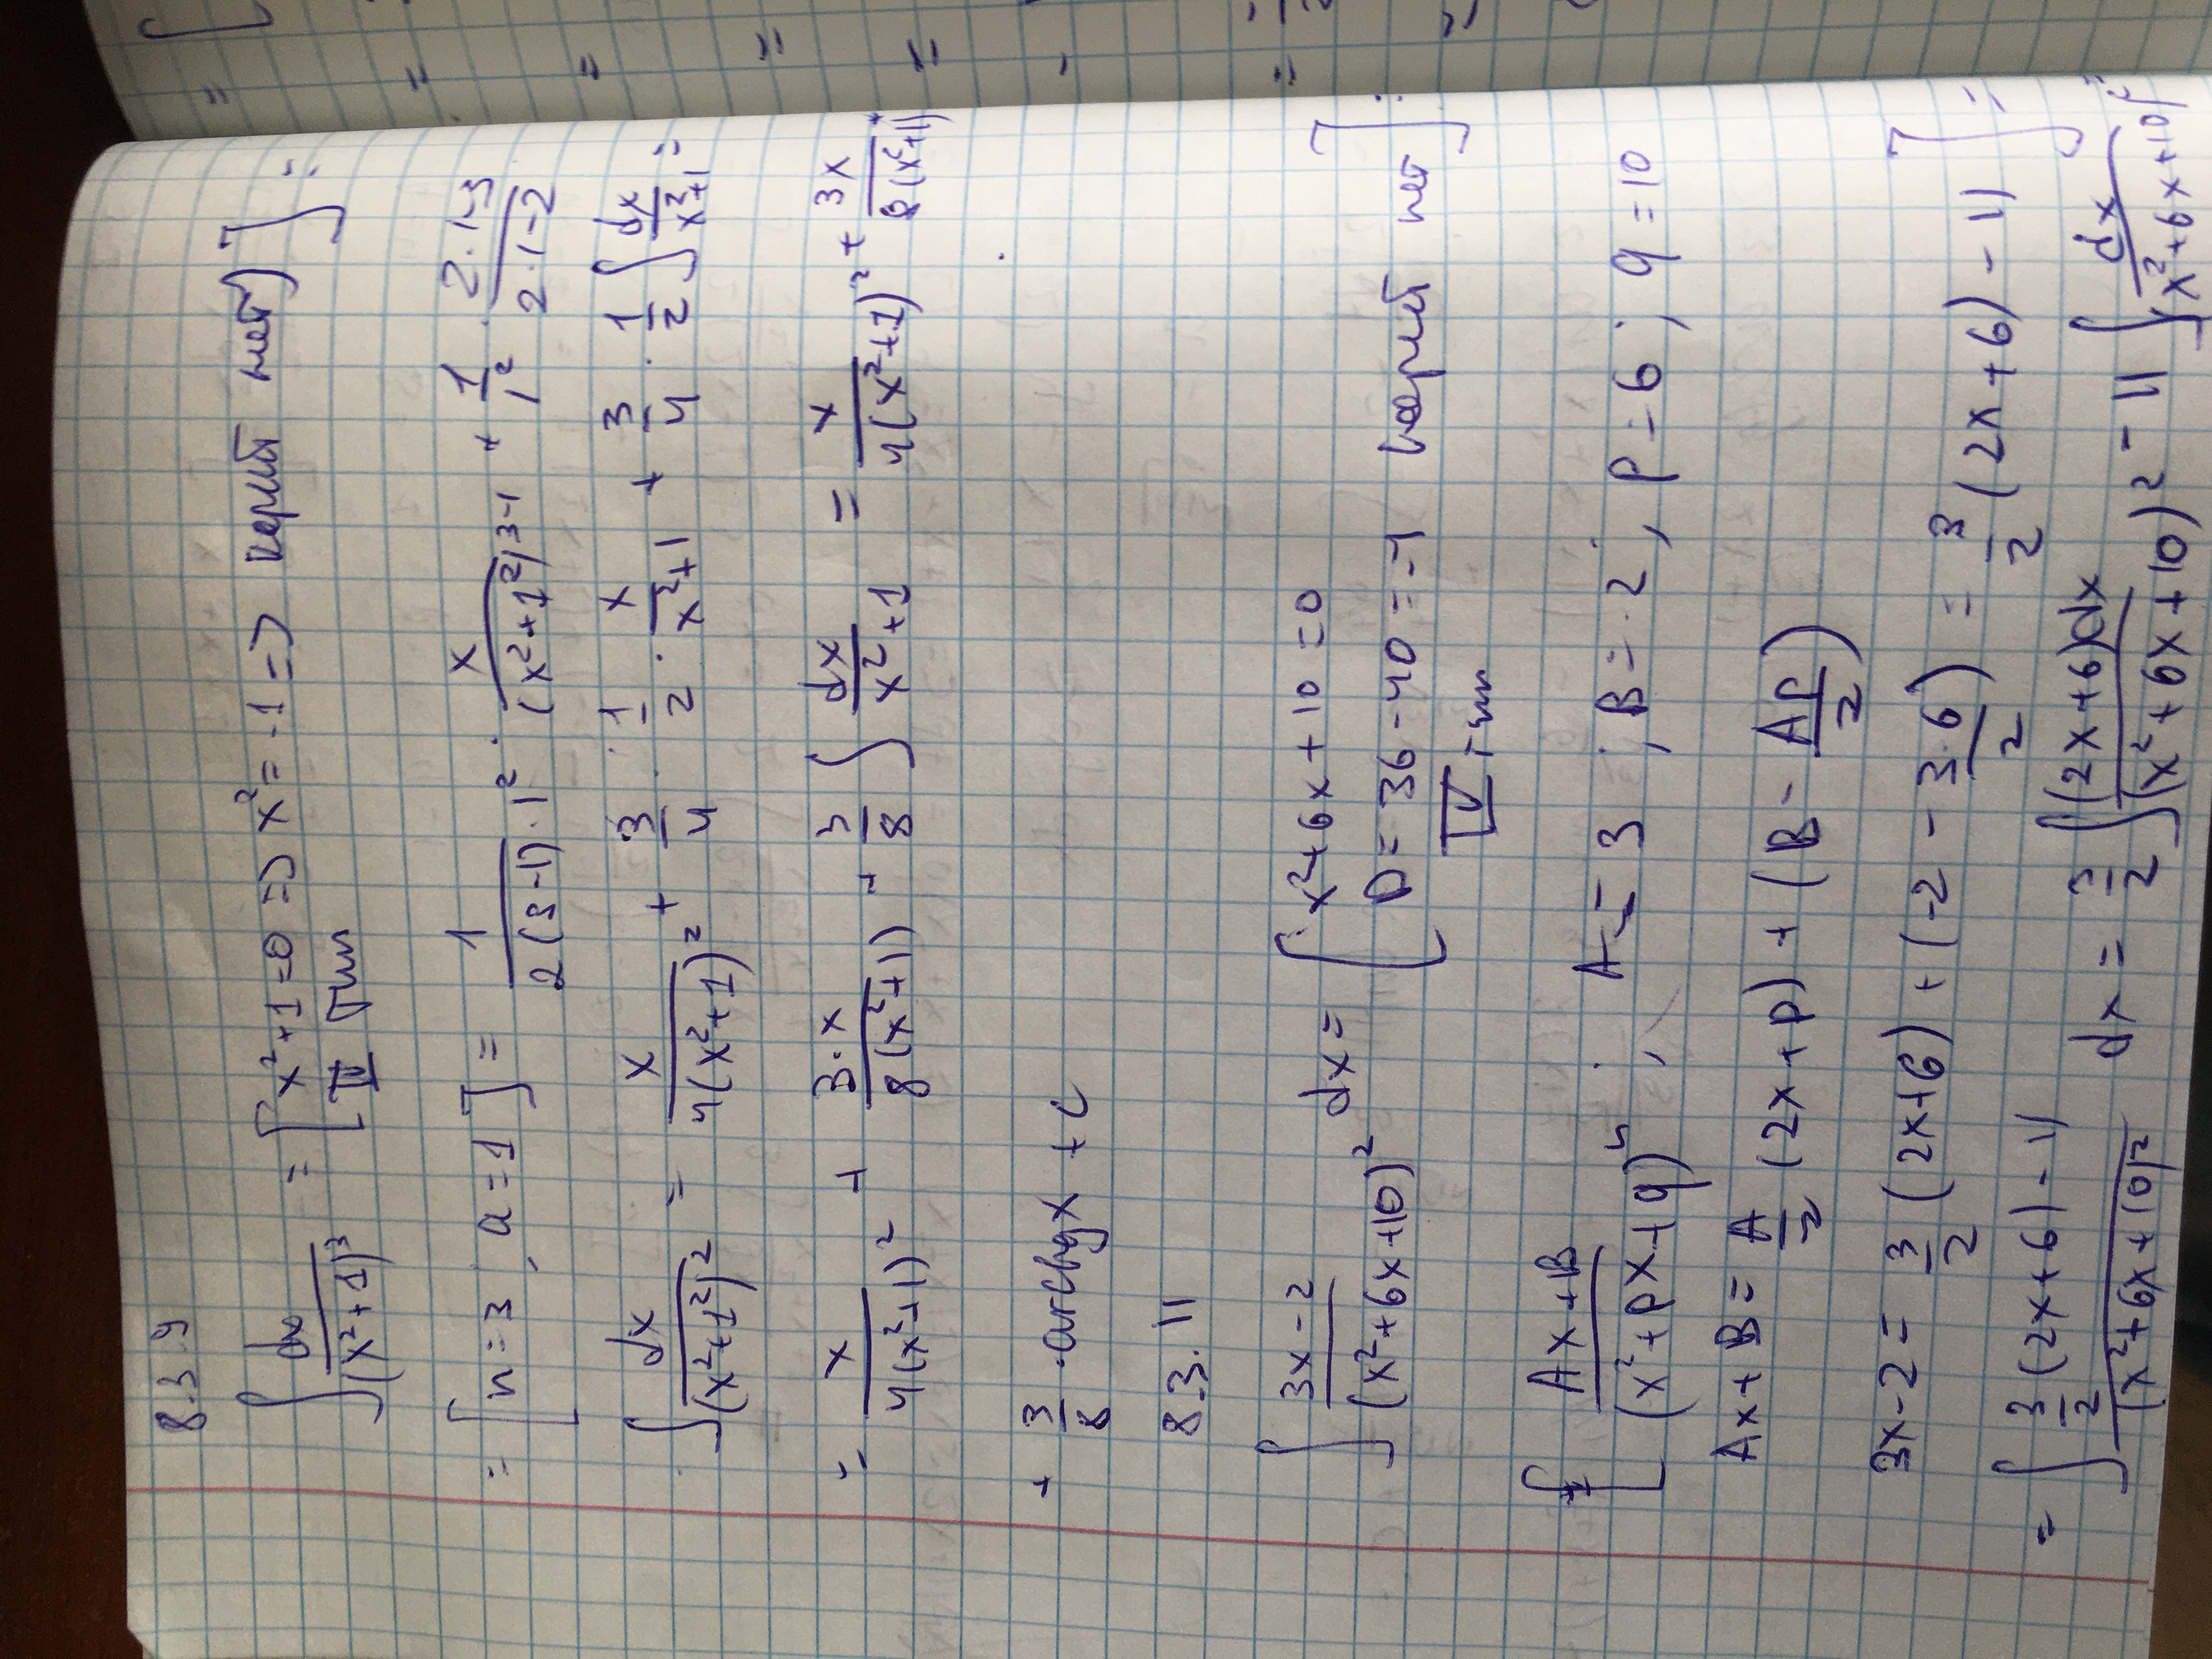 8.3.9
∫ dx/(x²+1)³ = [x²+1=0 => x²=-1 => корней нет)
IV тип] =
= [n=3, a=1] = 1/(2(3-1)·1²) · x/(x²+1²)^(3-1) + 1/1² · (2·1-3)/(2·1-2)
· ∫ dx/(x²+1²)² = x/(4(x²+1)²) + 3/4 · 1/2 · x/(x²+1) + 3/4 · 1/2 ∫ dx/(x²+1) =
= x/(4(x²+1)²) + 3·x/(8(x²+1)) + 3/8 ∫ dx/(x²+1) = x/(4(x²+1)²) + 3x/(8(x²+1)) +
+ 3/8 · arctgx + c
8.3.11
∫ (3x-2)/(x²+6x+10)² dx = [x²+6x+10=0
D=36-40=-4 корней нет] =
IV тип
[(Ax+B)/(x²+px+q)ⁿ ; A=3 ; B=-2 ; p=6 ; q=10
Ax+B = A/2 (2x+p) + (B - Ap/2)
3x-2 = 3/2 (2x+6) + (-2 - 3·6/2) = 3/2 (2x+6) - 11] =
= ∫ (3/2 (2x+6) - 11)/(x²+6x+10)² dx = 3/2 ∫ (2x+6)dx/(x²+6x+10)² - 11 ∫ dx/(x²+6x+10)² =